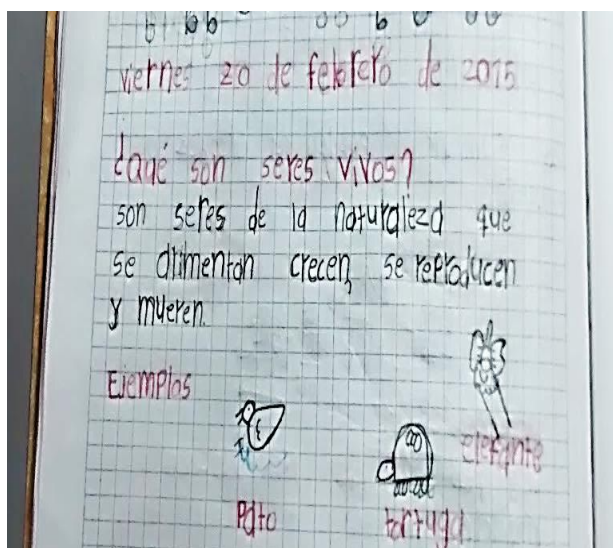 viernes 20 de febrero de 2015
¿Qué son seres vivos?
son seres de la naturaleza que
se alimentan crecen, se reproducen
y mueren.
Ejemplos
elefante
Pato
tortuga